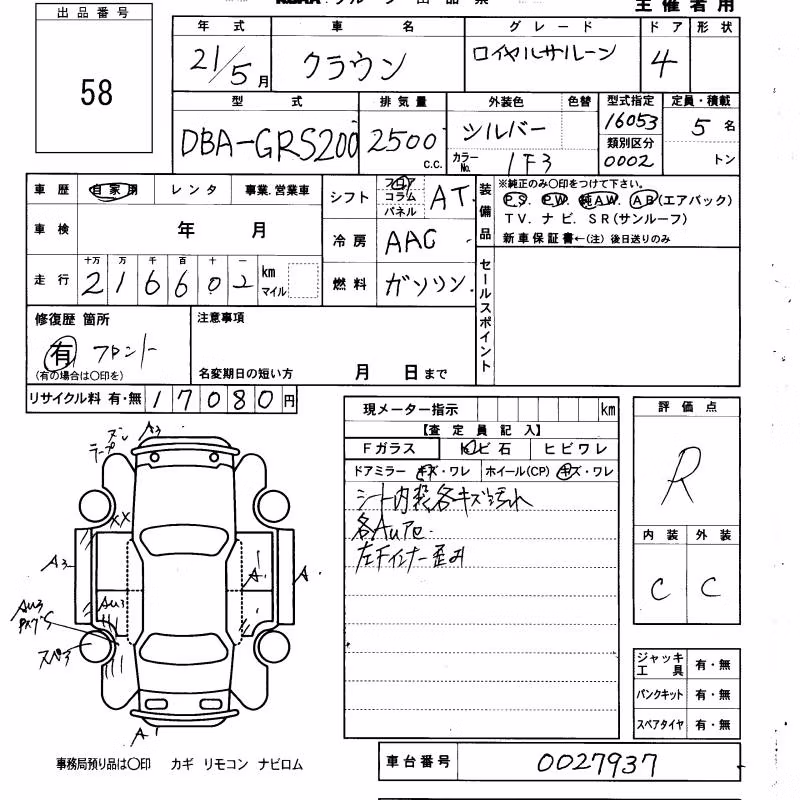 主催者用
出品番号
58
年式 車名 グレード ドア 形状
21/5月 クラウン ロイヤルサルーン 4
型式 排気量 外装色 色替 型式指定 定員・積載
DBA-GRS200 2500c.c. シルバー 16053 5名
カラーNo. 1F3 類別区分 0002 トン
車歴 自家用 レンタ 事業.営業車
シフト フロア コラム パネル AT
装備品 ※純正のみ〇印をつけて下さい。
PS. PW. 純AW. AB(エアバック)
TV. ナビ. SR(サンルーフ)
新車保証書←(注) 後日送りのみ
車検 年 月
冷房 AAC
走行 十万 万 千 百 十 一
216602 km マイル
燃料 ガソリン
セールスポイント
修復歴 箇所
有 フロント
(有の場合は〇印を)
注意事項
名変期日の短い方 月 日まで
リサイクル料 有・無 17080円
現メーター指示 km
【査定員記入】
Fガラス トビ石 ヒビワレ
ドアミラー キズ・ワレ ホイール(CP) キズ・ワレ
シート内装各キズ汚れ
各Auアセ
左Fインナー歪み
評価点
R
内装 外装
C C
A3
XX
A3
A
A
Au3
Au3
スペア
A1
ジャッキ工具 有・無
パンクキット 有・無
スペアタイヤ 有・無
事務局預り品は〇印 カギ リモコン ナビロム
車台番号 0027937